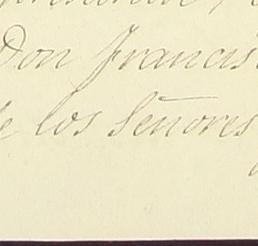 Don Francis
de los Señores